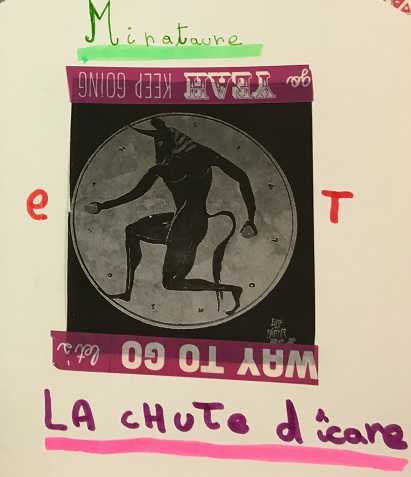 Minataure
go YEAH KEEP GOING
e T
WAY TO GO let's
LA cHuTe d icare